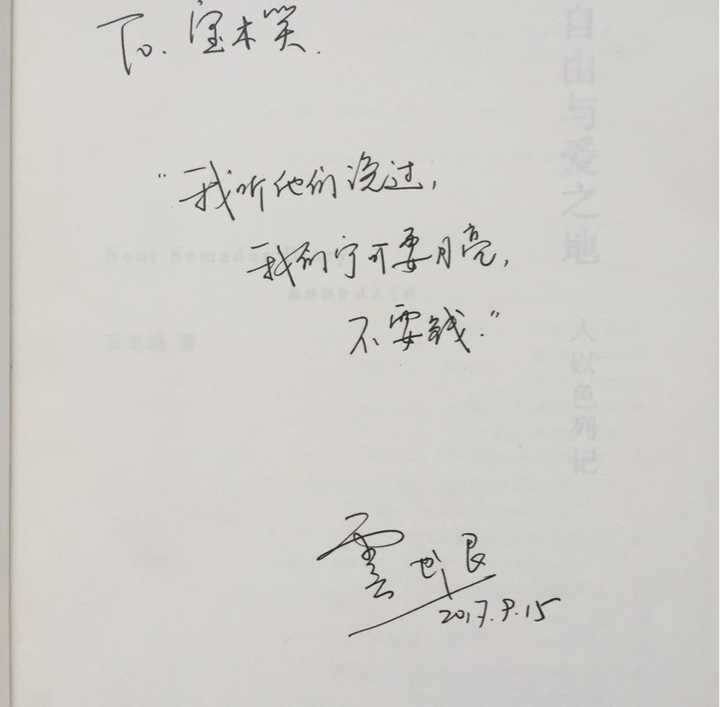 To. 宝木笑.
“我听他们说过,
我们宁可要月亮,
不要钱.”
雲也退
2017.9.15
自由与爱之地
入以色列记